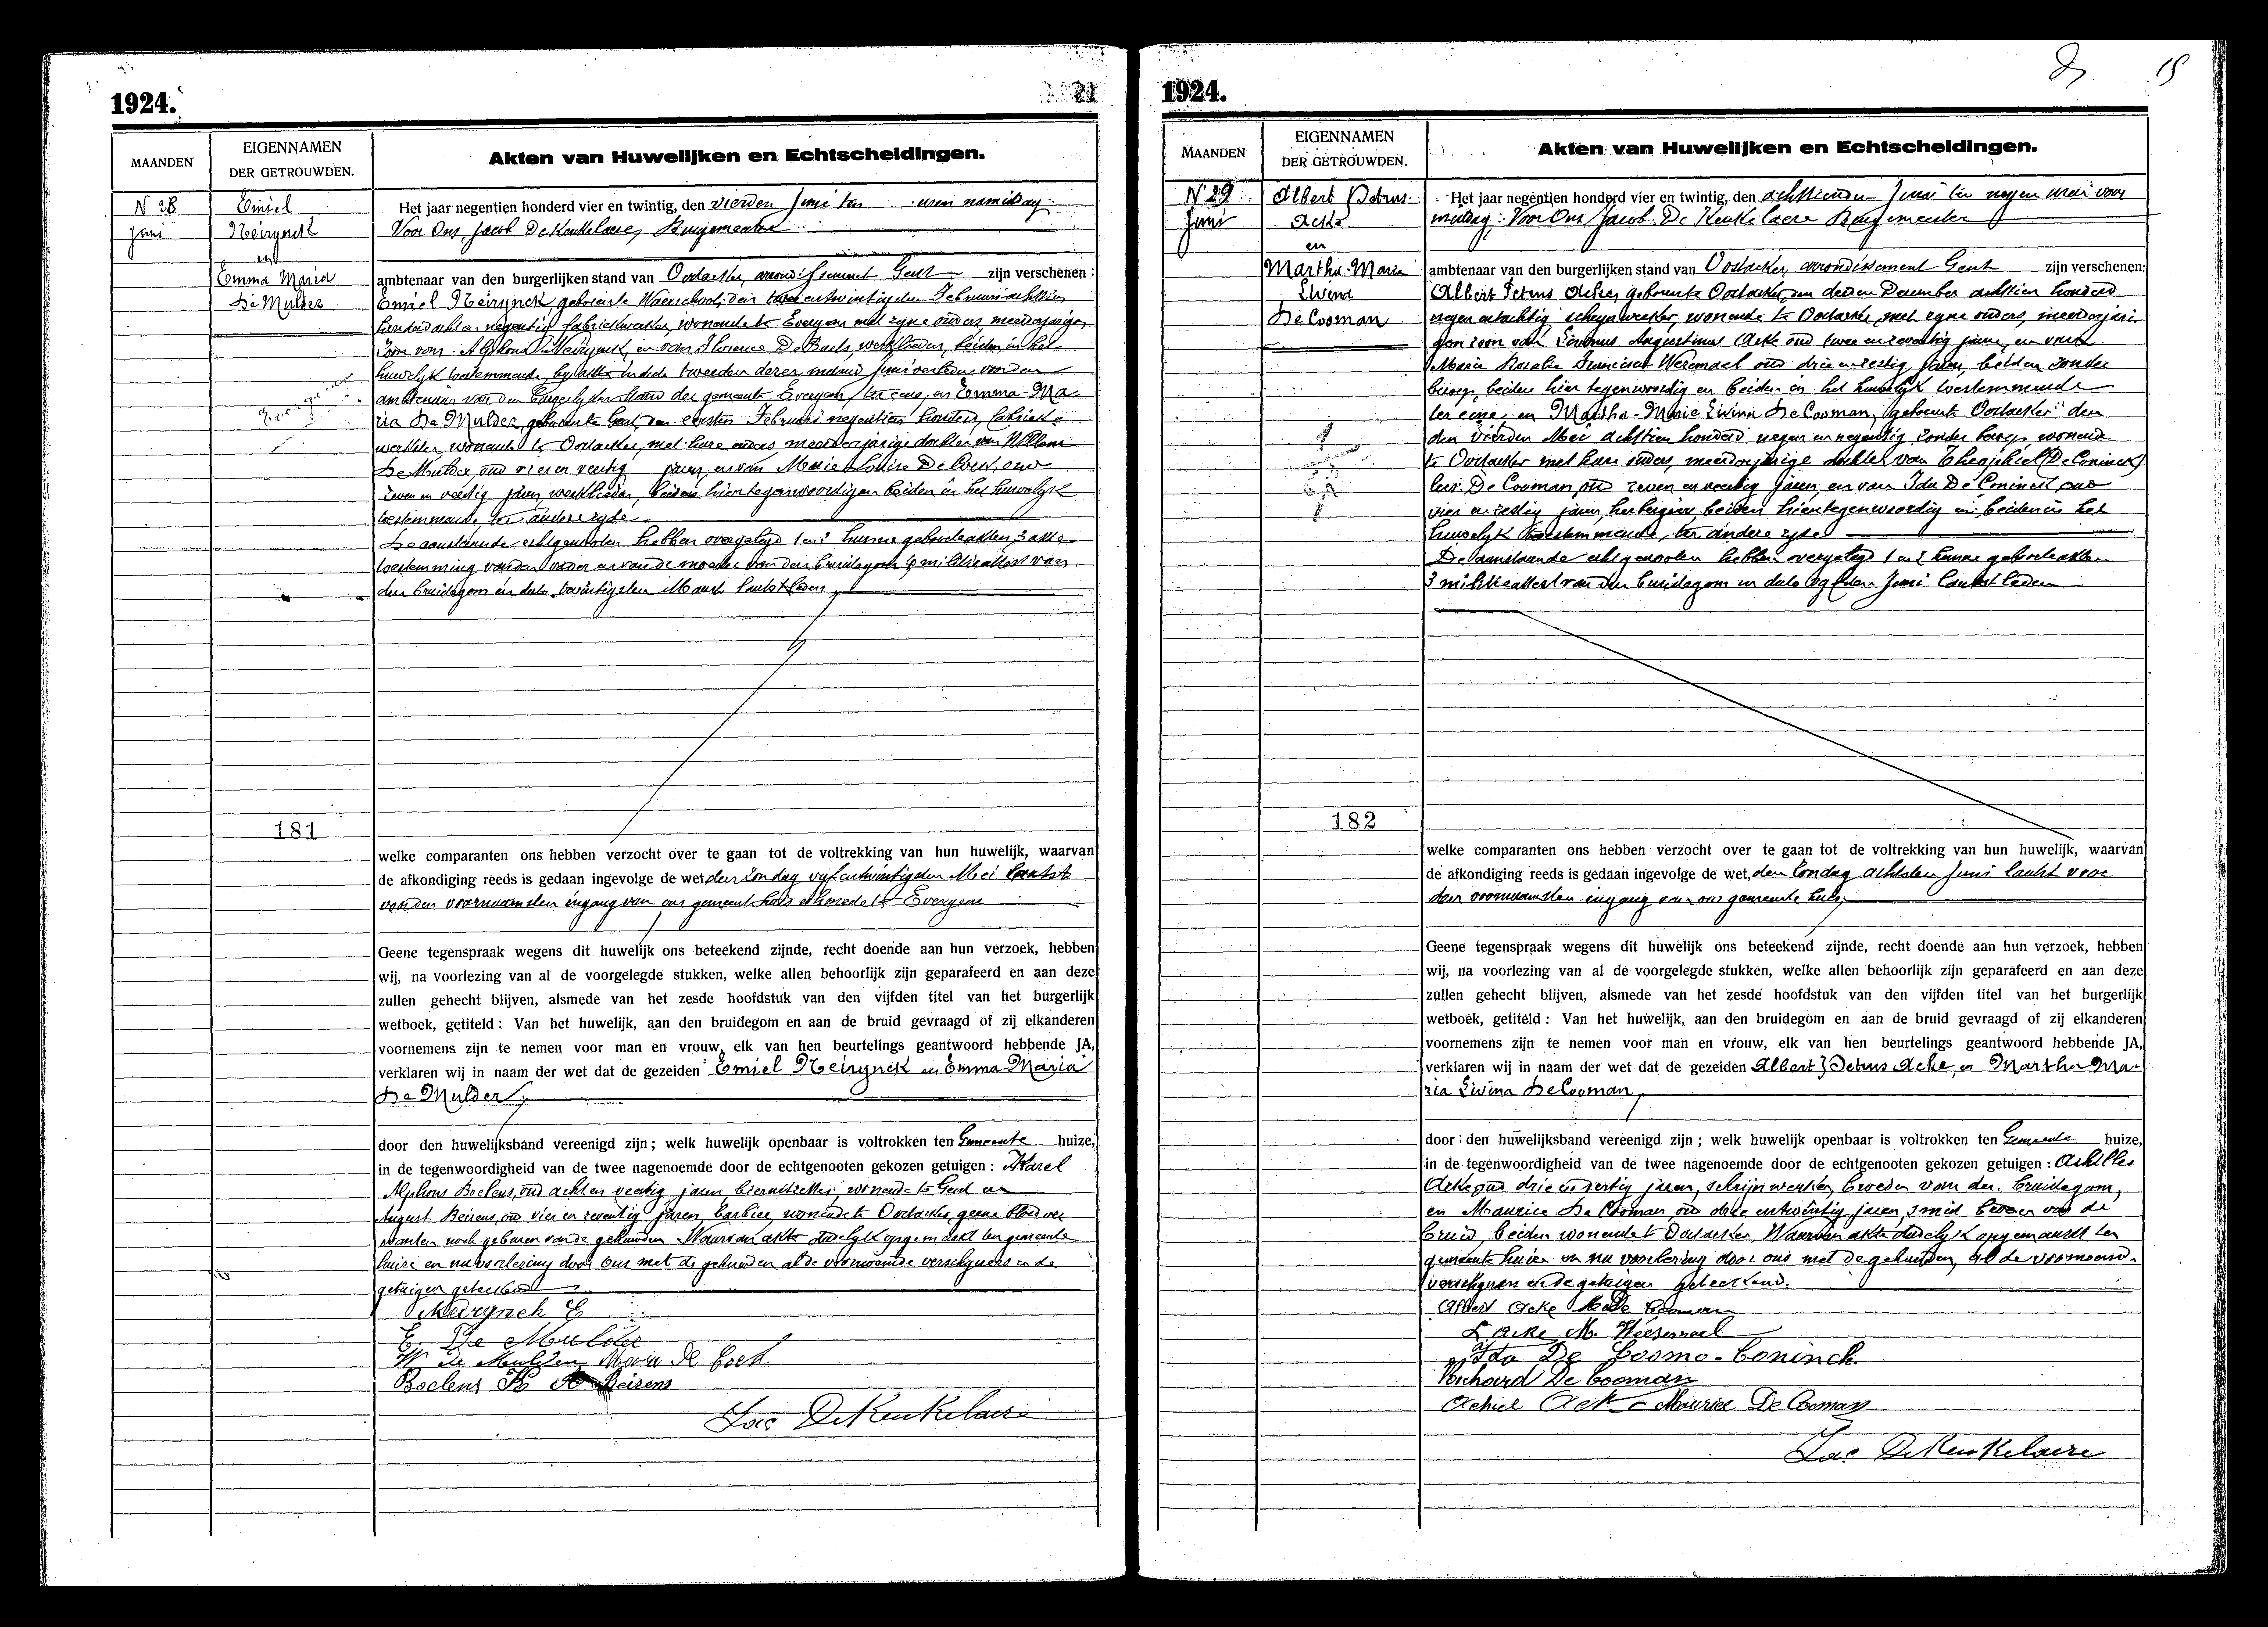 1924.
21
MAANDEN
EIGENNAMEN
DER GETROUWDEN.
Akten van Huwelijken en Echtscheidingen.
N 28
Juni
Emiel
Neirynck
en
Emma Maria
De Mulder
Het jaar negentien honderd vier en twintig, den vierden Juni ten uren namiddag
Voor Ons, Jacob De Keukelaere, Burgemeester
ambtenaar van den burgerlijken stand van Oostacker, arrondissement Gent zijn verschenen :
Emiel Neirynck geboren te Waerschoot, den twee en twintigsten Februari achttien
honderd acht en negentig, fabriekwerker, wonende te Evergem met zyne ouders, meerderjarige
zoon van Alphons Neirynck, en van Florence De Baets, werklieden, beiden in het
huwelyk toestemmende, by akte in date tweeden dezer maand Juni verleden van den
ambtenaar van den burgerlyken stand der gemeente Evergem, ter eene, en Emma-Ma-
ria De Mulder, geboren te Gent, den eersten Februari negentien honderd, fabriek-
werkster, wonende te Oostacker, met hare ouders, meerderjarige dochter van Willem
De Mulder, oud vier en veertig jaren, en van Marie Louise De Cock, oud
zeven en veertig jaren, werklieden, beiden hier tegenwoordig en beiden in het huwelyk
toestemmende, ter andere zyde
De aanstaande echtgenooten hebben overgelegd 1 en 2 hunne geboorteakten, 3 akte
toestemming van den vader en van de moeder van den bruidegom 4 militieattest van
den bruidegom in dato twintigsten Maart laatstleden
181
welke comparanten ons hebben verzocht over te gaan tot de voltrekking van hun huwelijk, waarvan
de afkondiging reeds is gedaan ingevolge de wet den Zondag vijfentwintigsten Mei laatst
van den voornaamsten ingang van ons gemeentehuis alsmede te Evergem
Geene tegenspraak wegens dit huwelijk ons beteekend zijnde, recht doende aan hun verzoek, hebben
wij, na voorlezing van al de voorgelegde stukken, welke allen behoorlijk zijn geparafeerd en aan deze
zullen gehecht blijven, alsmede van het zesde hoofdstuk van den vijfden titel van het burgerlijk
wetboek, getiteld : Van het huwelijk, aan den bruidegom en aan de bruid gevraagd of zij elkanderen
voornemens zijn te nemen voor man en vrouw, elk van hen beurtelings geantwoord hebbende JA,
verklaren wij in naam der wet dat de gezeiden Emiel Neirynck en Emma-Maria
De Mulder,
door den huwelijksband vereenigd zijn ; welk huwelijk openbaar is voltrokken ten Gemeente huize,
in de tegenwoordigheid van de twee nagenoemde door de echtgenooten gekozen getuigen : Karel
Alphons Boelens, oud acht en veertig jaren, bieruitzetter, wonende te Gent en
August Beirens, oud vier en zeventig jaren, barbier, wonende te Oostacker, geene bloedver
wanten noch geburen van de gehuwden Waarvan akte dadelyk opgemaakt ten gemeente
huize en na voorlezing door ons met de gehuwden al de voornoemde verschyners en de
getuigen geteekend
Neirynck E
E. De Mulder
W de Mulder Marie De Cock
Boelens K A Beirens
Jac DeKeukelaere
1924.
15
MAANDEN
EIGENNAMEN
DER GETROUWDEN.
Akten van Huwelijken en Echtscheidingen.
N 29
Juni
Albert Petrus
Acke
en
Martha-Maria
Livina
De Cooman
Het jaar negentien honderd vier en twintig, den achttienden Juni ten negen uren voor
middag : Voor Ons Jacob De Keukelaere Burgemeester
ambtenaar van den burgerlijken stand van Oostacker, arrondissement Gent zijn verschenen:
Albert Petrus Acke, geboren te Oostacker, den derden December achttien honderd
negen entachtig, schrynwerker, wonende te Oostacker, met zyne ouders, meerderjari-
gen zoon van Livinus Augustinus Acke oud twee en zeventig jaren, en van
Maria Rosalia Francisca Weremael oud drie en zestig jaren, beiden zonder
beroep, beiden hier tegenwoordig en beiden in het huwelyk toestemmende
ter eene, en Martha-Marie Livina De Cooman, geboren te Oostacker den
den vierden Mei achttien honderd negen en negentig, zonder beroep, wonende
te Oostacker met hare ouders, meerderjarige dochter van Theophiel (De Coninck)
De Cooman, oud zeven en zestig jaren en van Ida De Coninck, oud
vier en zestig jaren, herbergiers, beiden hier tegenwoordig en beiden in het
huwelyk toestemmende, ter andere zyde
De aanstaande echtgenooten hebben overgelegd 1 en 2 hunne geboorteakten
3 militieattest van den bruidegom in dato Juni laatst leden
182
welke comparanten ons hebben verzocht over te gaan tot de voltrekking van hun huwelijk, waarvan
de afkondiging reeds is gedaan ingevolge de wet, den Zondag achtsten Juni laatst voor
den voornaamsten ingang van ons gemeente huis,
Geene tegenspraak wegens dit huwelijk ons beteekend zijnde, recht doende aan hun verzoek, hebben
wij, na voorlezing van al de voorgelegde stukken, welke allen behoorlijk zijn geparafeerd en aan deze
zullen gehecht blijven, alsmede van het zesde hoofdstuk van den vijfden titel van het burgerlijk
wetboek, getiteld : Van het huwelijk, aan den bruidegom en aan de bruid gevraagd of zij elkanderen
voornemens zijn te nemen voor man en vrouw, elk van hen beurtelings geantwoord hebbende JA,
verklaren wij in naam der wet dat de gezeiden Albert Petrus Acke, en Martha Ma-
ria Livina De Cooman,
door den huwelijksband vereenigd zijn ; welk huwelijk openbaar is voltrokken ten Gemeente huize,
in de tegenwoordigheid van de twee nagenoemde door de echtgenooten gekozen getuigen : Achilles
Acke, oud drie en dertig jaren, schrijnwerker, broeder van den bruidegom,
en Maurice De Cooman oud drie entwintig jaren, smid broeder van de
bruid, beiden wonende te Oostacker, Waarvan akte dadelyk opgemaakt ten
gemeente huize en na voorlezing door ons met de gehuwden, al de voornoemde
verschyners en de getuigen geteekend.
Albert Acke M De Cooman
L Acke M Weesemael
Ida De Coomo-Coninck
Richard De Cooman
Achiel Acke Maurice De Cooman
Jac DeKeukelaere